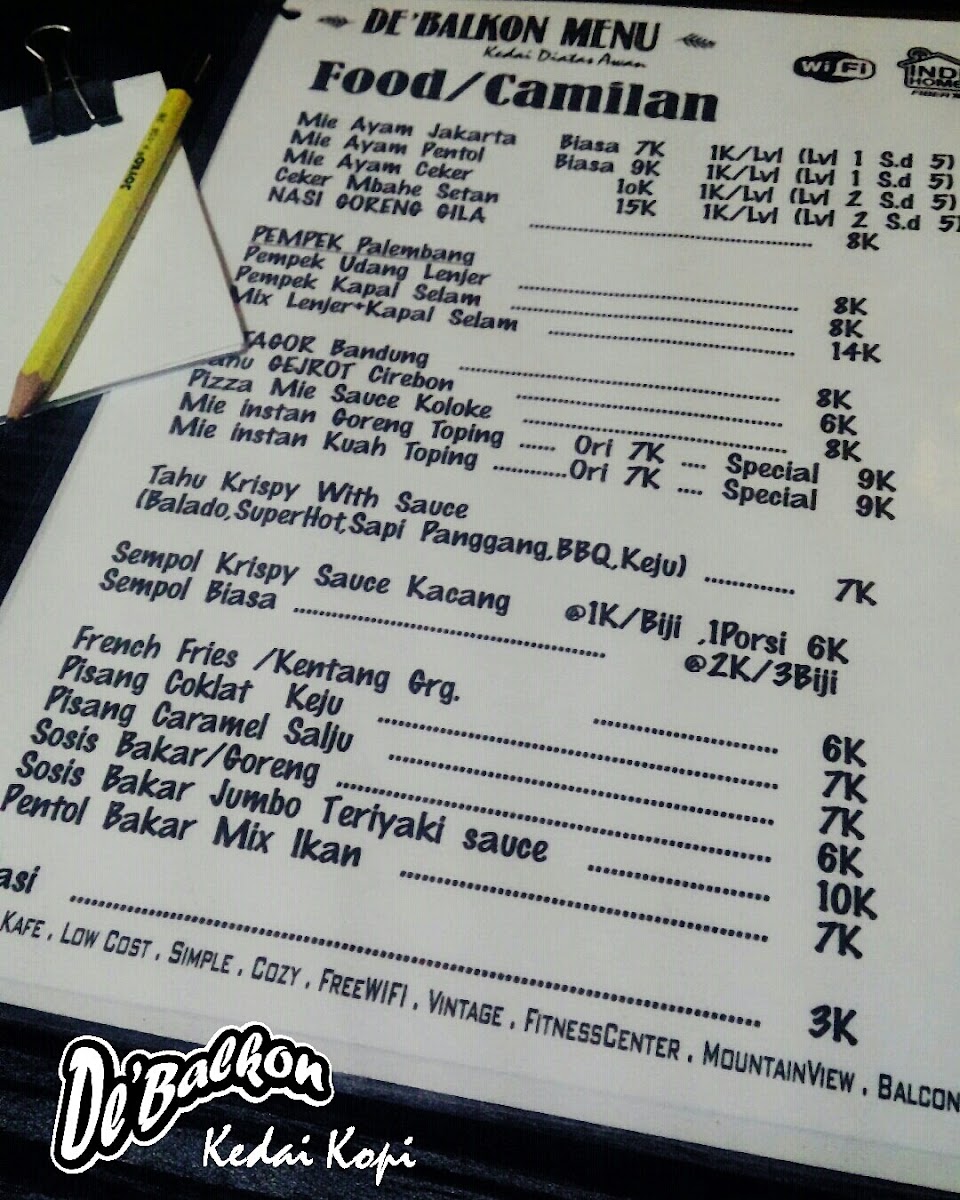 DE'BALKON MENU
Kedai Diatas Awan
WiFi
INDI
HOME
FIBER
Food/Camilan
Mie Ayam Jakarta Biasa 7K 1K/Lvl (Lvl 1 S.d 5)
Mie Ayam Pentol Biasa 9K 1K/Lvl (Lvl 1 S.d 5)
Mie Ayam Ceker 10K 1K/Lvl (Lvl 2 S.d 5)
Ceker Mbahe Setan 15K 1K/Lvl (Lvl 2 S.d 5)
NASI GORENG GILA 8K
PEMPEK Palembang
Pempek Udang Lenjer 8K
Pempek Kapal Selam 8K
Mix Lenjer+Kapal Selam 14K
TAGOR Bandung 8K
GEJROT Cirebon 6K
Pizza Mie Sauce Koloke 8K
Mie instan Goreng Toping ...... Ori 7K .... Special 9K
Mie instan Kuah Toping ...........Ori 7K .... Special 9K
Tahu Krispy With Sauce
(Balado,SuperHot,Sapi Panggang,BBQ,Keju) ............ 7K
Sempol Krispy Sauce Kacang @1K/Biji ,1Porsi 6K
Sempol Biasa @2K/3Biji
French Fries /Kentang Grg. 6K
Pisang Coklat Keju 7K
Pisang Caramel Salju 7K
Sosis Bakar/Goreng 6K
Sosis Bakar Jumbo Teriyaki sauce 10K
Pentol Bakar Mix Ikan 7K
asi 3K
KAFE , LOW COST , SIMPLE , COZY , FREEWIFI , VINTAGE , FITNESSCENTER , MOUNTAINVIEW , BALCON
De'Balkon
Kedai Kopi
JOYKO